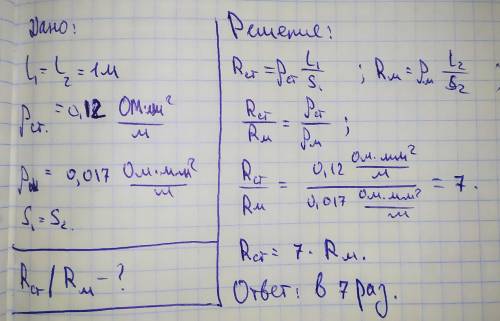 Дано:
L₁ = L₂ = 1м
ρст. = 0,12 Ом·мм²/м
ρм = 0,017 Ом·мм²/м
S₁ = S₂.
Rст / Rм - ?
Решение:
Rст = ρст L₁/S₁ ; Rм = ρм L₂/S₂ ;
Rст/Rм = ρст/ρм ;
Rст/Rм = 0,12 Ом·мм²/м / 0,017 Ом·мм²/м = 7.
Rст = 7 · Rм.
Ответ: в 7 раз.